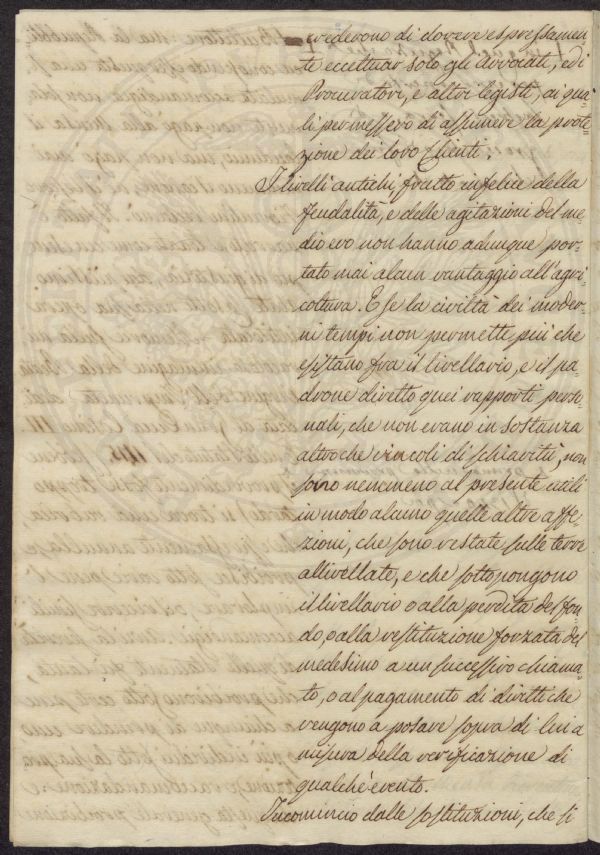 crederono di dovere espressamen-
te eccettuar solo gli Avvocati, ed i
Procuratori, e altri legisti, ai qua-
li permessero di assumere la prote-
zione dei loro Clienti.
I livelli antichi frutto infelice della
feudalità, e delle agitazioni del me-
dio evo non hanno adunque por-
tato mai alcun vantaggio all'agri-
coltura. E se la civiltà dei moder-
ni tempi non permette più che
esistano fra il livellario, e il pa-
drone diretto quei rapporti perso-
nali, che non erano in sostanza
altro che vincoli di schiavitù, non
sono nemmeno al presente utili
in modo alcuno quelle altre affe-
zioni, che sono restate sulle terre
allivellate, e che sottopongono
il livellario o alla perdita del fon-
do, o alla restituzione forzata del
medesimo a un successivo chiama-
to, o al pagamento di diritti che
vengono a posare sopra di lui a
misura della verificazione di
qualche evento.
Incomincio dalle sostituzioni, che si